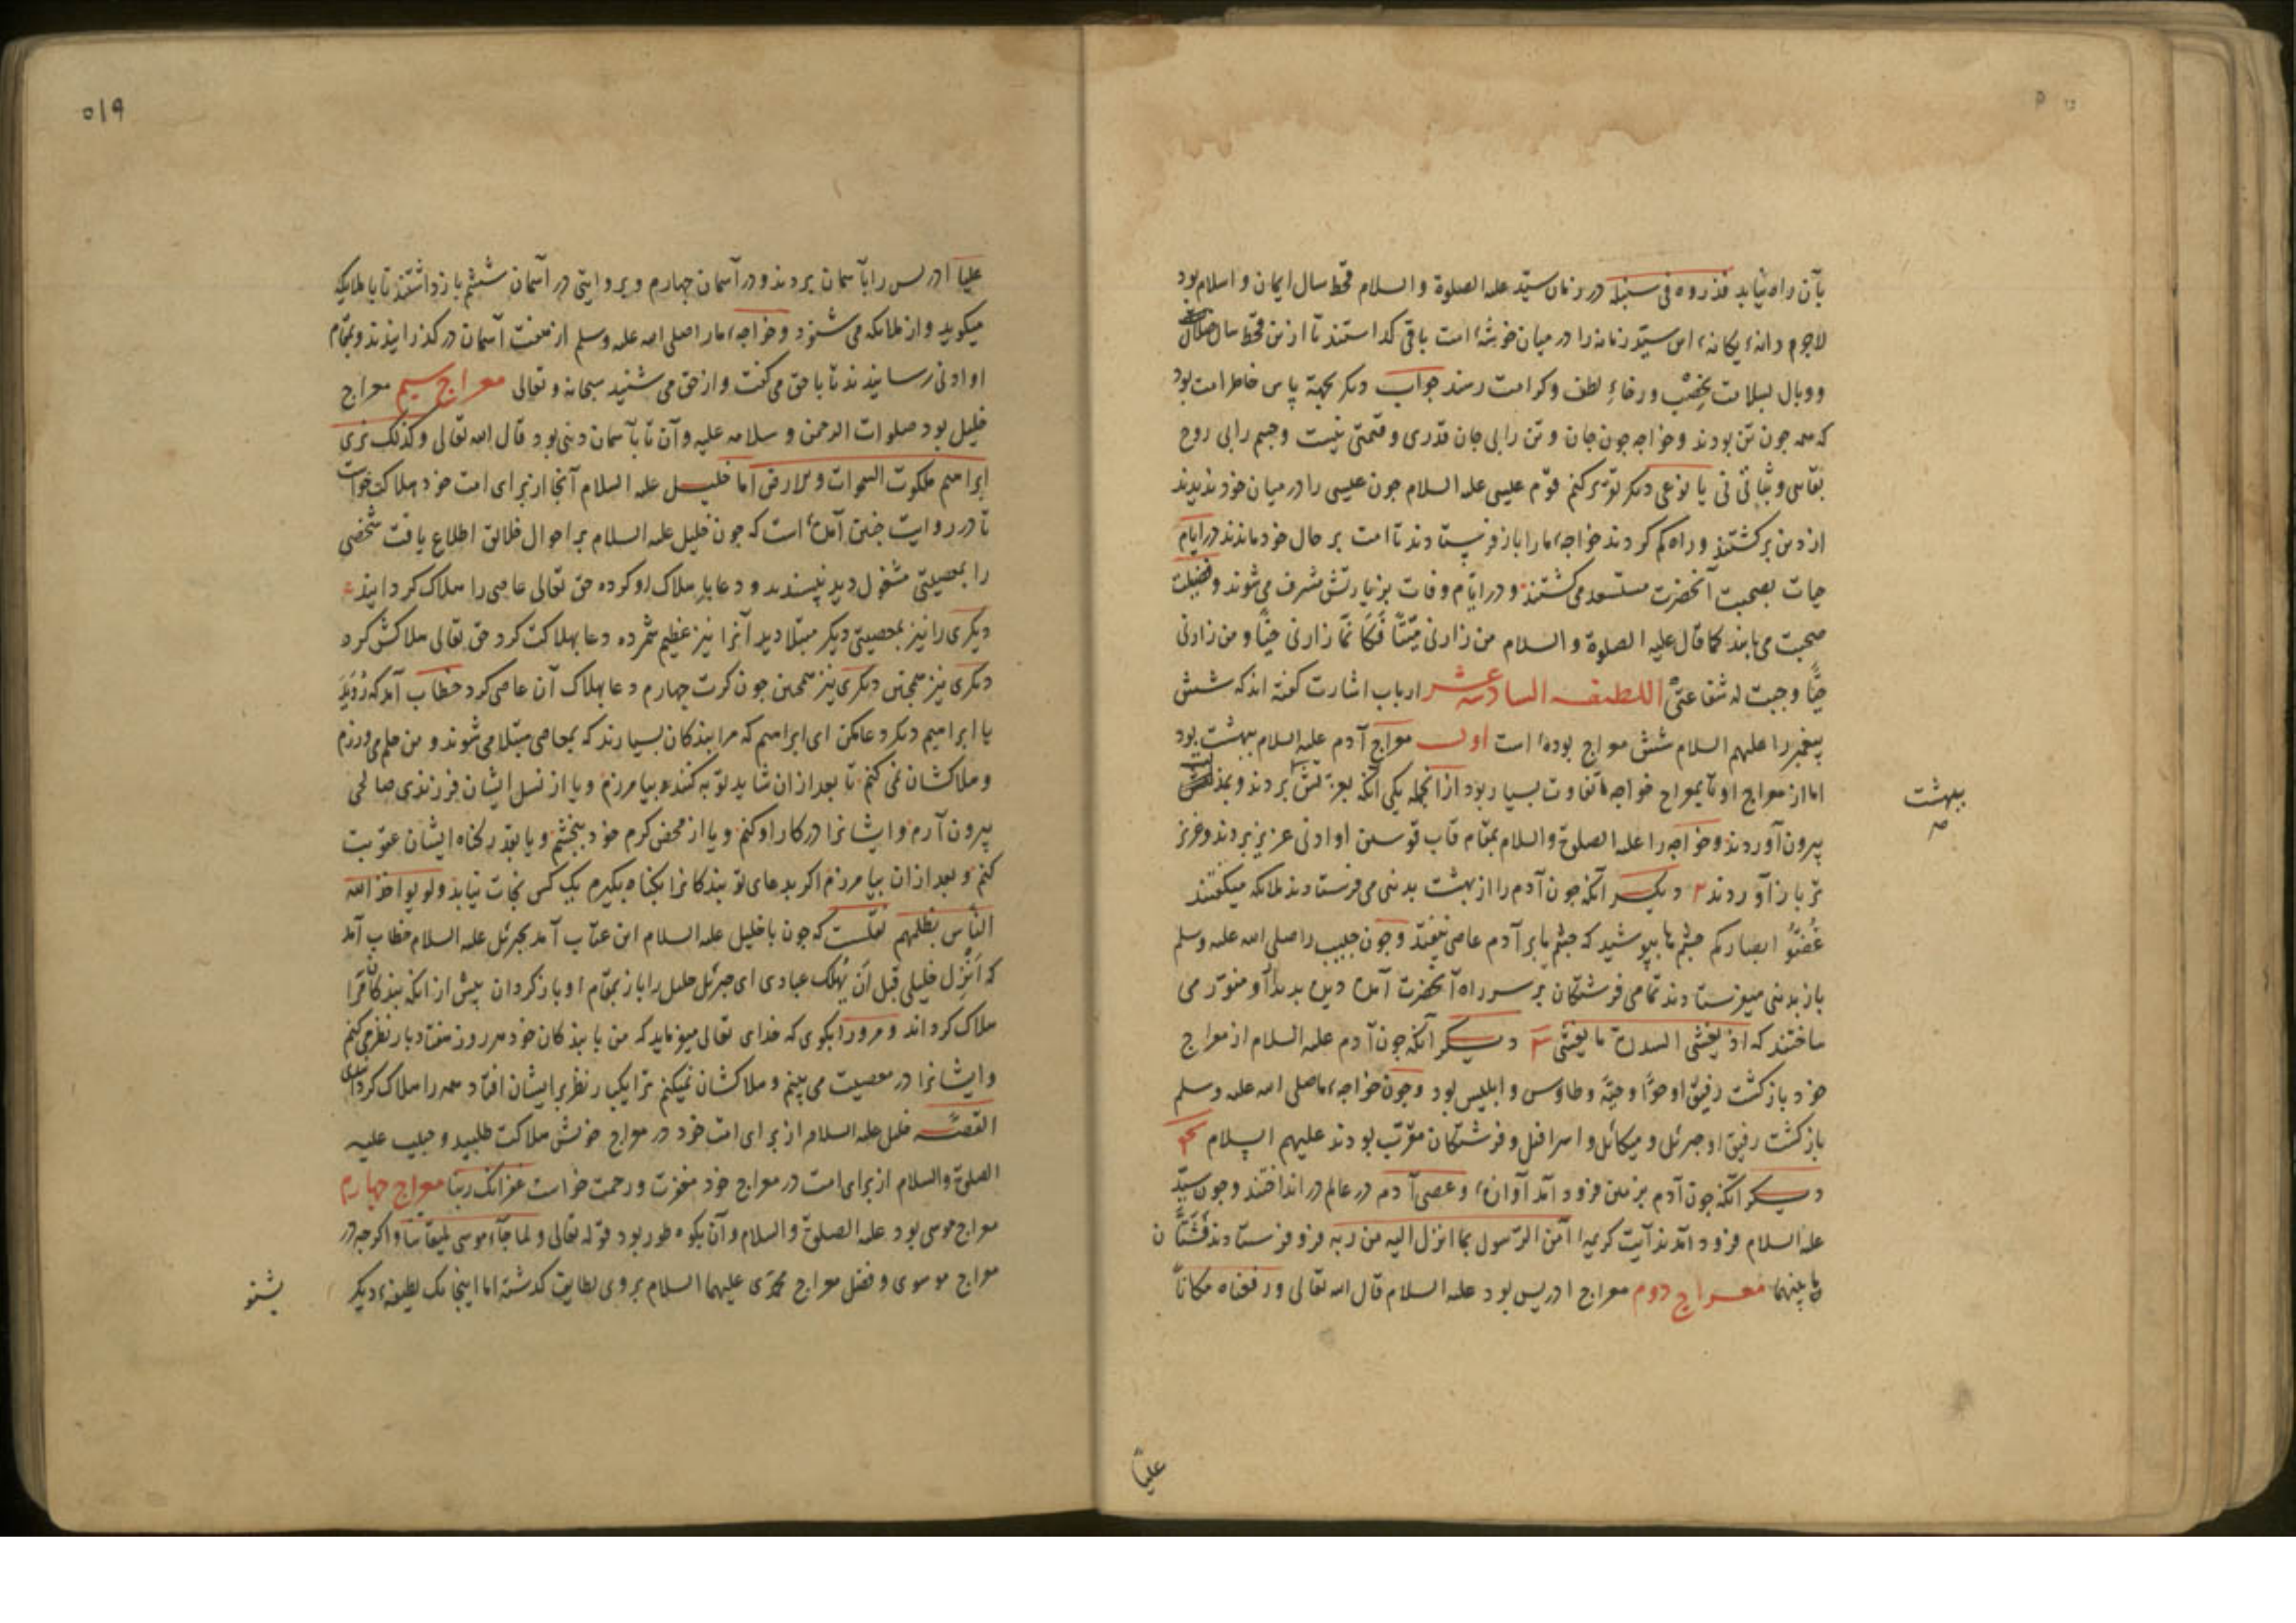 بآن راه نیابد فذروه فی سنبله در زمان سیّد علیه الصلوة والسلام قحط سال ایمان و اسلام بود
لاجرم دانهٔ یکانهٔ این سیّد زمانه را در میان خوشهٔ امت باقی کذاستند تا ازین قحط سال ضلال
و وبال بسلامت بخصب و رخاء لطف و کرامت رسند جواب دیکر بجهة پاس خاطر امت بود
که همه جون تن بودند و خواجه جون جان و تن را بی جان قدری و قیمتی نیست و جسم را بی روح
بقایی و بقائی نی یا نوعی دیکر تقریر کنم قوم عیسی علیه السلام جون عیسی را در میان خود ندیدند
از دین برکشتند و راه کم کردند خواجهٔ ما را باز فرستادند تا امت بر حال خود ماندند در ایام
حیات بصحبت آنحضرت مستسعد می کشتند و در ایام وفات بزیارتش مشرف می شوند و فضیلت
صحبت می یابند کما قال علیه الصلوة والسلام من زارنی میّتًا فکانّما زارنی حیًّا و من زارنی
حیًّا وجبت له شفاعتی اللطیفه السادسه عشر ارباب اشارت کفته اند که شش
پیغمبر را علیهم السلام شش معراج بوده است اول معراج آدم علیه السلام ببهشت بود
اما از معراج او تا بمعراج خواجه ما تفاوت بسیار بود از انجمله یکی آنکه بعزتش بردند و بمذلتش
ببهشت
صح
بیرون آوردند و خواجه را علیه الصلوة والسلام بمقام قاب قوسین او ادنی عزیز بردند و عزیز
تر باز آوردند ۲ دیکر آنکه جون آدم را از بهشت بدنیی می فرستادند ملایکه میکفتند
غُضّوا ابصارکم جشمها بپوشید که جشم ما بر آدم عاصی نیفتد و جون حبیب را صلی الله علیه وسلم
باز بدنیی میفرستادند تمامی فرشتکان بر سر راه آنحضرت آمده دیده بدیدار او منور می
ساختند که اذ یغشی السدرة ما یغشی ۳ دیکر آنکه جون آدم علیه السلام از معراج
خود بازکشت رفیق او حوّا و حیّه و طاوس و ابلیس بود و جون خواجهٔ ما صلی الله علیه وسلم
بازکشت رفیق او جبرئل و میکائل و اسرافیل و فرشتکان مقرّب بودند علیهم السلام ۴
دیکر آنکه جون آدم بزمین فرود آمد آوازهٔ و عصی آدم در عالم در انداختند و جون سیّد
علیه السلام فرود آمدند آیت کریمهٔ آمن الرسول بما انزل الیه من ربه فرو فرستادند فشتّان
ما بینهما معراج دوم معراج ادریس بود علیه السلام قال الله تعالی و رفعناه مکانًا
علیًّا
۵۱۹
علیا ادریس را بآسمان بردند و در آسمان جهارم و بروایتی در آسمان ششم بازداشتند تا با ملایکه
میکوید و از ملایکه می شنود و خواجهٔ ما را صلی الله علیه وسلم از هفت آسمان در کذرانیدند و بمقام
او ادنی رسانیدند تا با حق می کفت و از حق می شنید سبحانه و تعالی معراج سیم معراج
خلیل بود صلوات الرحمن و سلامه علیه و آن تا بآسمان دنیی بود قال الله تعالی و کذلک نری
ابراهیم ملکوت السموات والارض اما خلیل علیه السلام آنجا از برای امت خود هلاکت خواست
تا در روایت جنین آمده است که جون خلیل علیه السلام بر احوال خلایق اطلاع یافت شخصی
را بمعصیتی مشغول دید نپسندید و دعا بهلاک او کرده حق تعالی عاصی را هلاک کردانید
دیکری را نیز بمعصیتی دیکر مبتلا دید آنرا نیز عظیم شمرده دعا بهلاکت کرد حق تعالی هلاکش کرد
دیکری نیز همجنین دیکری نیز همجنین جون کرت جهارم دعا بهلاک آن عاصی کرد خطاب آمد که رُوَیدَ
یا ابراهیم دیکر دعا مکن ای ابراهیم که مرا بندکان بسیارند که بمعاصی مبتلا می شوند و من حلم می ورزم
و هلاکشان نمی کنم تا بعد از ان شاید توبه کنند بیامرزم و یا از نسل ایشان فرزندی صالحی
بیرون آرم و ایشانرا در کار او کنم و یا از محض کرم خود ببخشم و یا بقدر کناه ایشان عقوبت
کنم و بعد از ان بیامرزم اکر بدعای تو بندکانرا بکناه بکیرم یک کس نجات نیابد و لو یواخذ الله
الناس بظلمهم نقلست که جون با خلیل علیه السلام این عتاب آمد بجبرئل علیه السلام خطاب آمد
که اَنزِل خلیلی قبل ان یُهلک عبادی ای جبرئل خلیل را باز بمقام او باز کردان پیش از انکه بندکان مرا
هلاک کرداند و مرو را بکوی که خدای تعالی میفرماید که من با بندکان خود هر روز هفتاد بار نظر می کنم
و ایشانرا در معصیت می بینم و هلاکشان نمیکنم ترا یکبار نظر بر ایشان افتاد همه را هلاک کردانیدی
القصّه خلیل علیه السلام از برای امت خود در معراج خویش هلاکت طلبید و حبیب علیه
الصلوة والسلام از برای امت در معراج خود مغفرت و رحمت خواست غفرانک ربنا معراج جهارم
معراج موسی بود علیه الصلوة والسلام و آن بکوه طور بود قوله تعالی و لما جاء موسی لمیقاتنا و اکرجه در
معراج موسوی و فضل معراج محمدی علیهما السلام بروی لطایف کذشته اما اینجا یک لطیفهٔ دیکر
بشنو